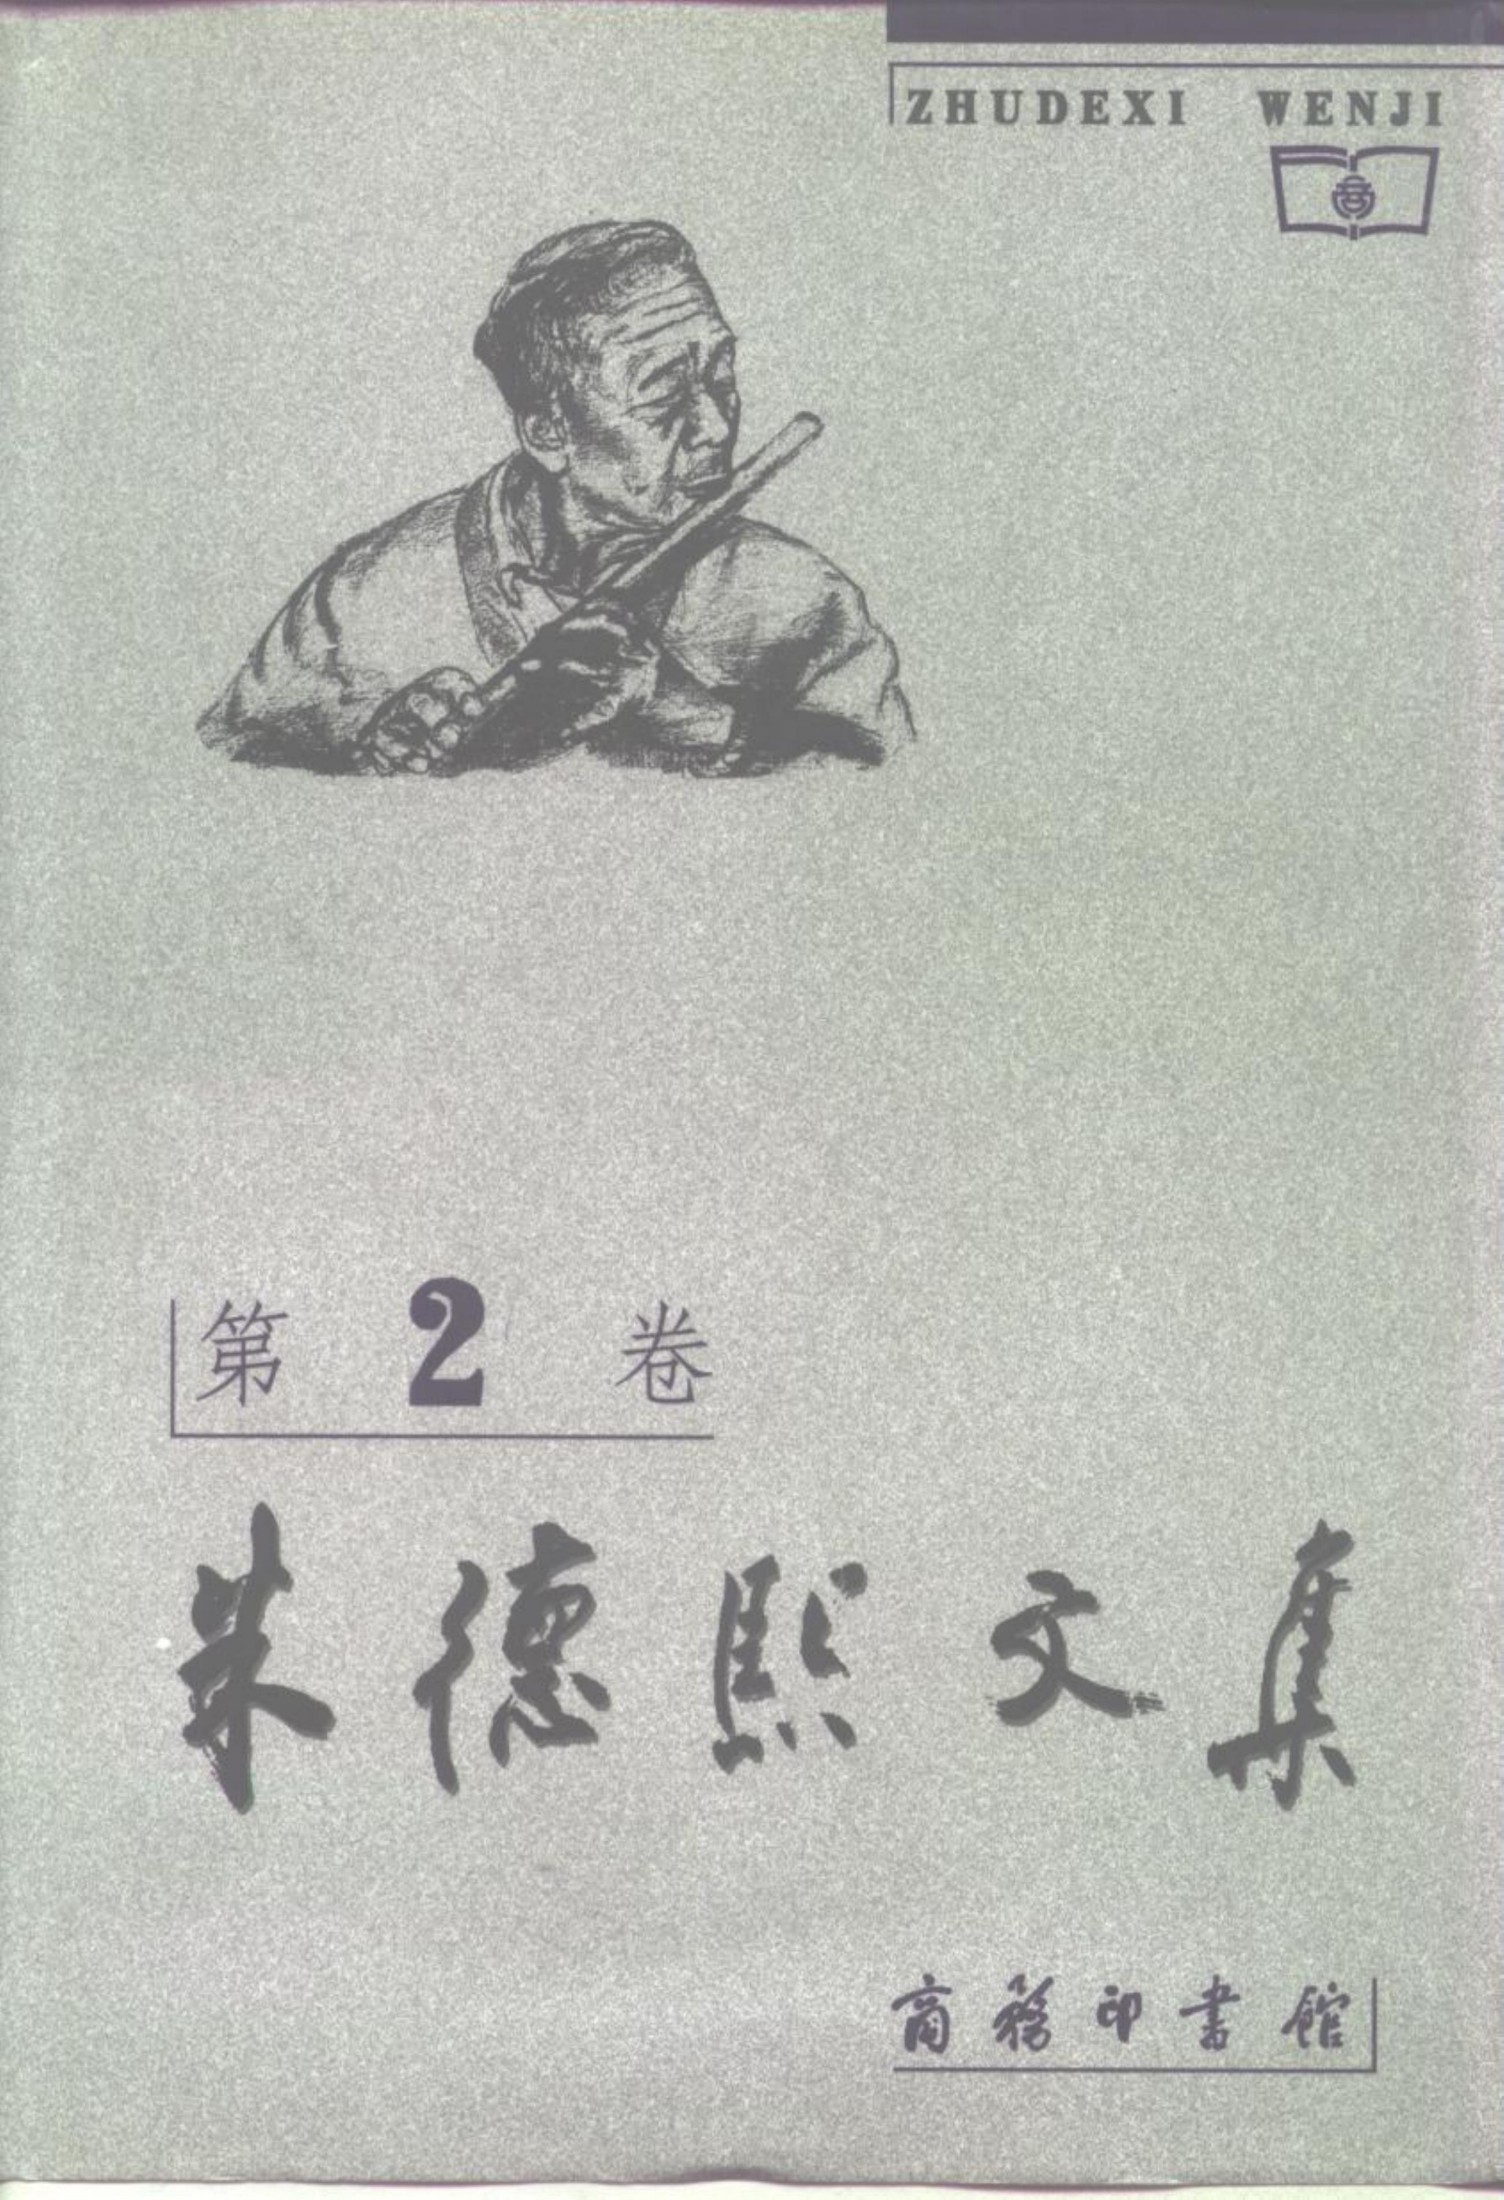 ZHUDEXI WENJI
第2卷
朱德熙文集
商務印書館